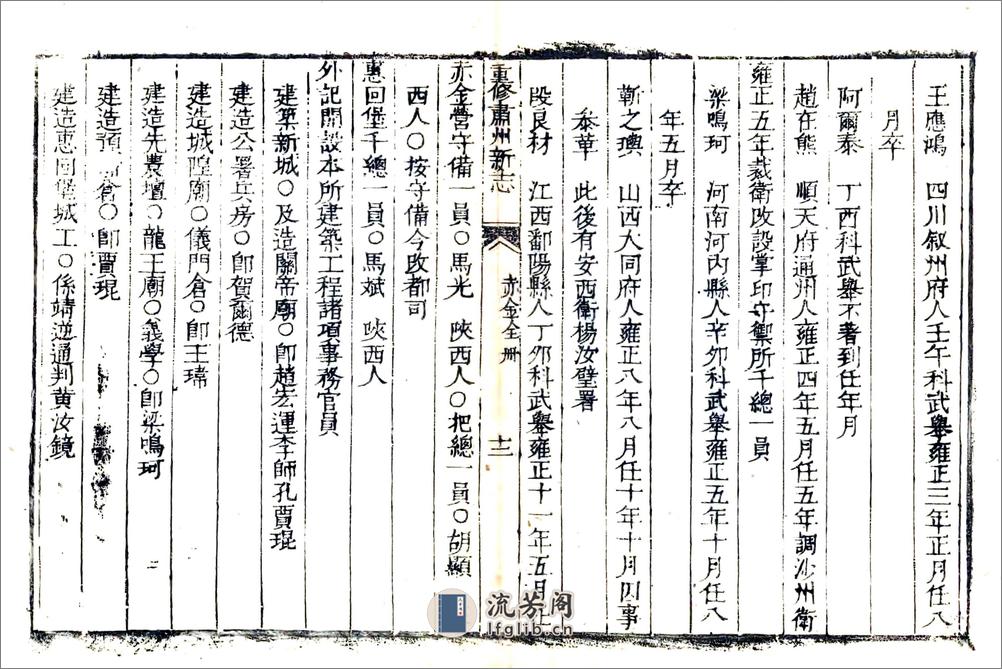 王應鴻　四川敘州府人壬午科武舉雍正三年正月任八
月卒
阿爾泰　丁酉科武舉不著到任年月
趙在熊　順天府通州人雍正四年五月任五年調沙州衛
雍正五年裁衛改設掌印守禦所千總一員
梁鳴珂　河南河內縣人辛卯科武舉雍正五年十月任八
年五月卒
靳之璵　山西大同府人雍正八年八月任十年十月因事
叅革　此後有安西衛楊汝璧署
段良材　江西鄱陽縣人丁卯科武舉雍正十一年五月任
重修肅州新志　赤金全册　十二
赤金營守備一員○馬光　陝西人○把總一員○胡顯　
西人○按守備今改都司
惠回堡千總一員○馬斌　陝西人
外記開設本所建築工程諸項事務官員
建築新城○及造關帝廟○卽趙宏運李師孔賈琨
建造公署兵房○卽賀爾德
建造城隍廟○儀門倉○卽王瑋
建造先農壇○龍王廟○義學○卽梁鳴珂
建造預　倉○卽賈琨
建造惠回堡城工○係靖逆通判黃汝鏡
流芳阁
lfglib.cn